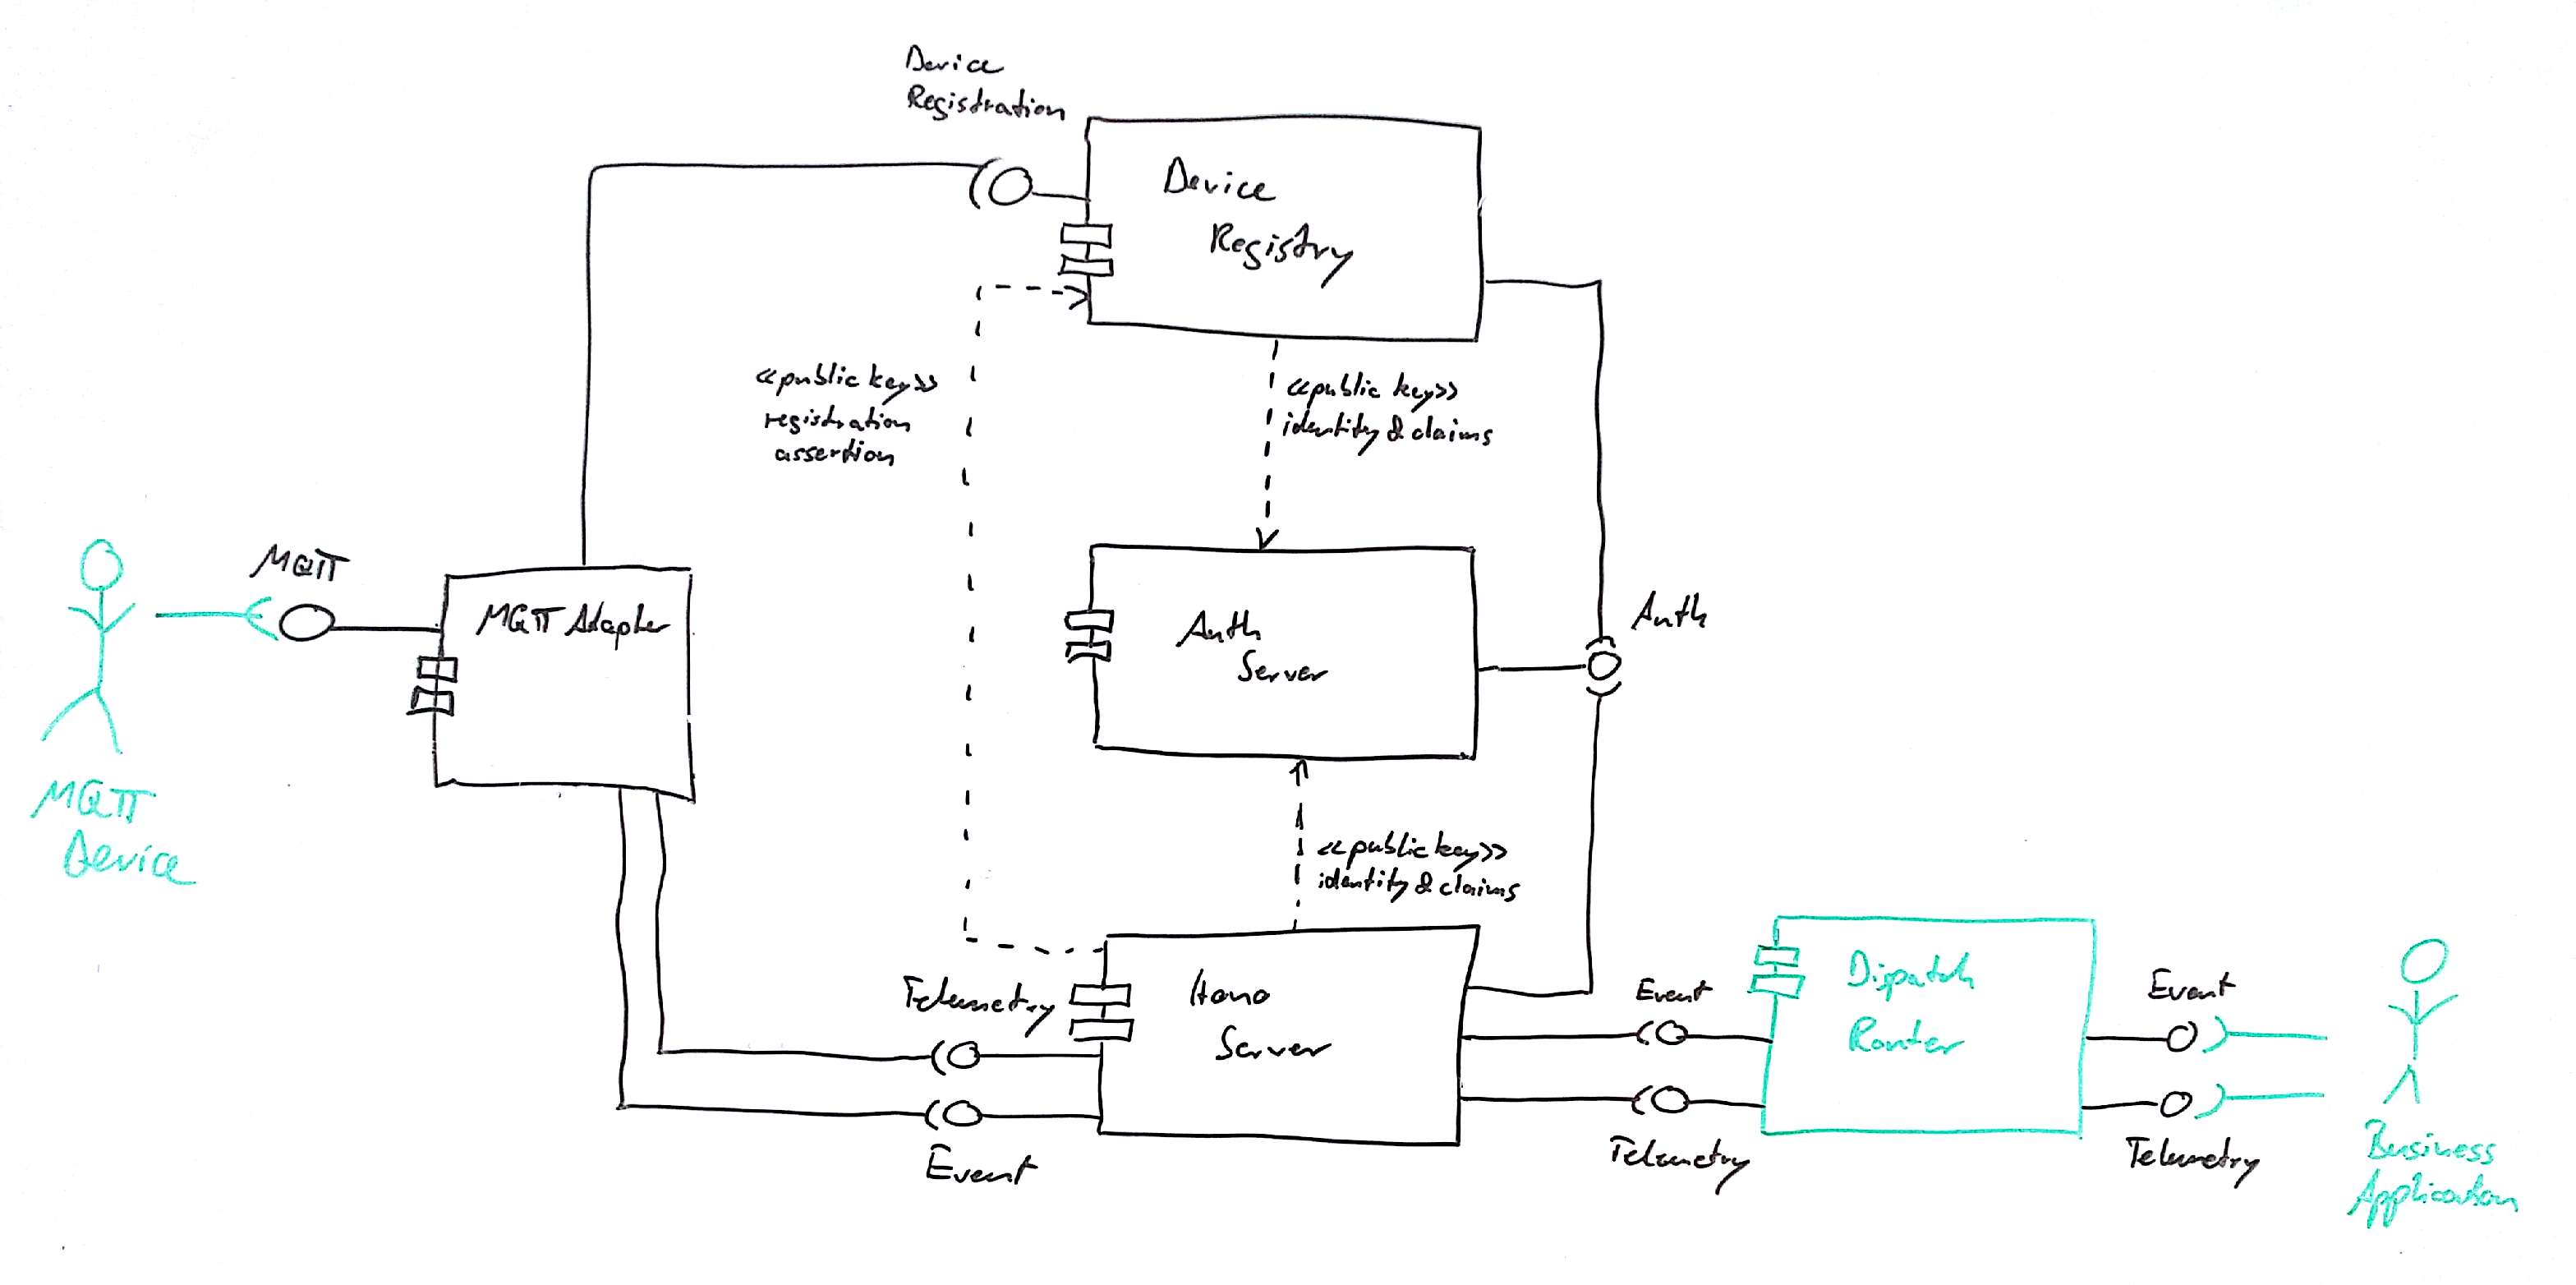 Device
Registration
Device
Registry
«public key»
registration
assertion
«public key»
identity & claims
MQTT
MQTT Adapter
Auth
Server
Auth
MQTT
Device
«public key»
identity & claims
Telemetry
Hono
Server
Event
Event
Telemetry
Dispatch
Router
Event
Telemetry
Business
Application